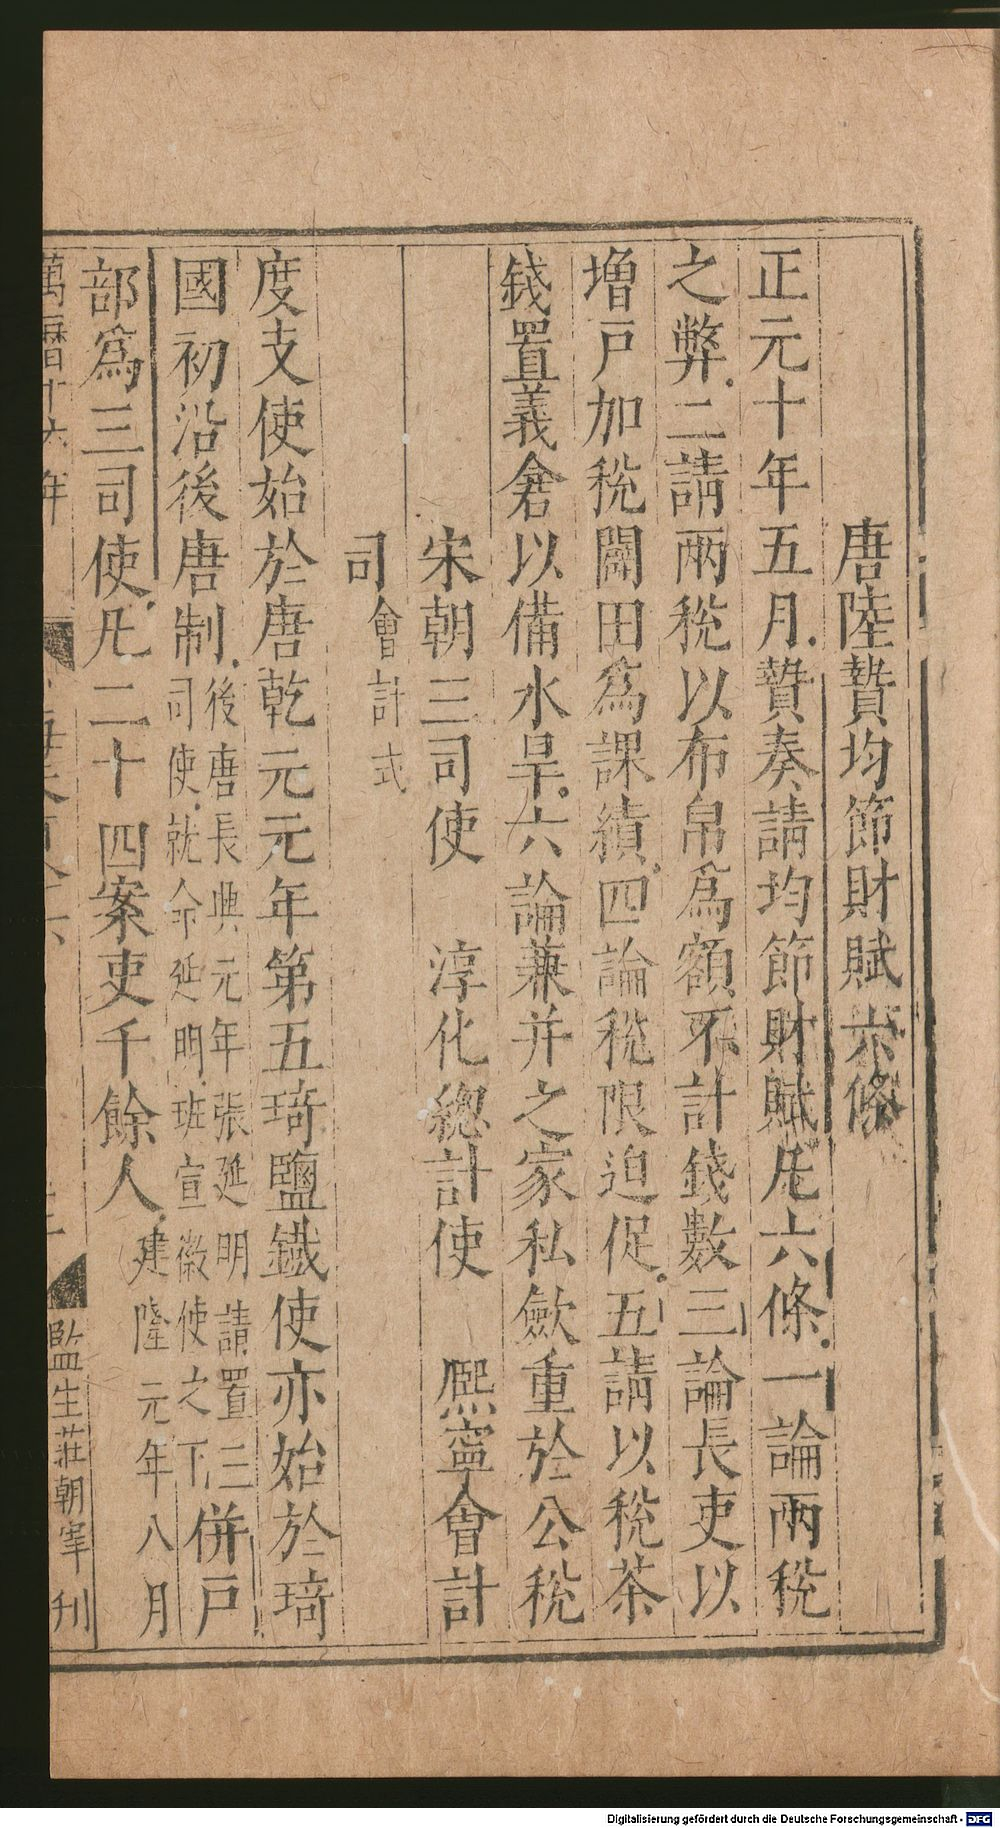 唐陸贄均節財賦六條
正元十年五月贄奏請均節財賦凡六條一論兩稅
之弊二請兩稅以布帛爲額不計錢數三論長吏以
增戸加稅闢田爲課績四論稅限迫促五請以稅茶
錢置義倉以備水旱六論兼并之家私斂重於公稅
宋朝三司使 淳化總計使 熙寧會計
司會計式
度支使始於唐乾元元年第五琦鹽鐵使亦始於琦
國初沿後唐制後唐長興元年張延明請置三司使就命延明班宣徽使之下併戸
部爲三司使凡二十四案吏千餘人建隆元年八月
萬曆十六年
監生莊朝宰刊
Digitalisierung gefördert durch die Deutsche Forschungsgemeinschaft - DFG